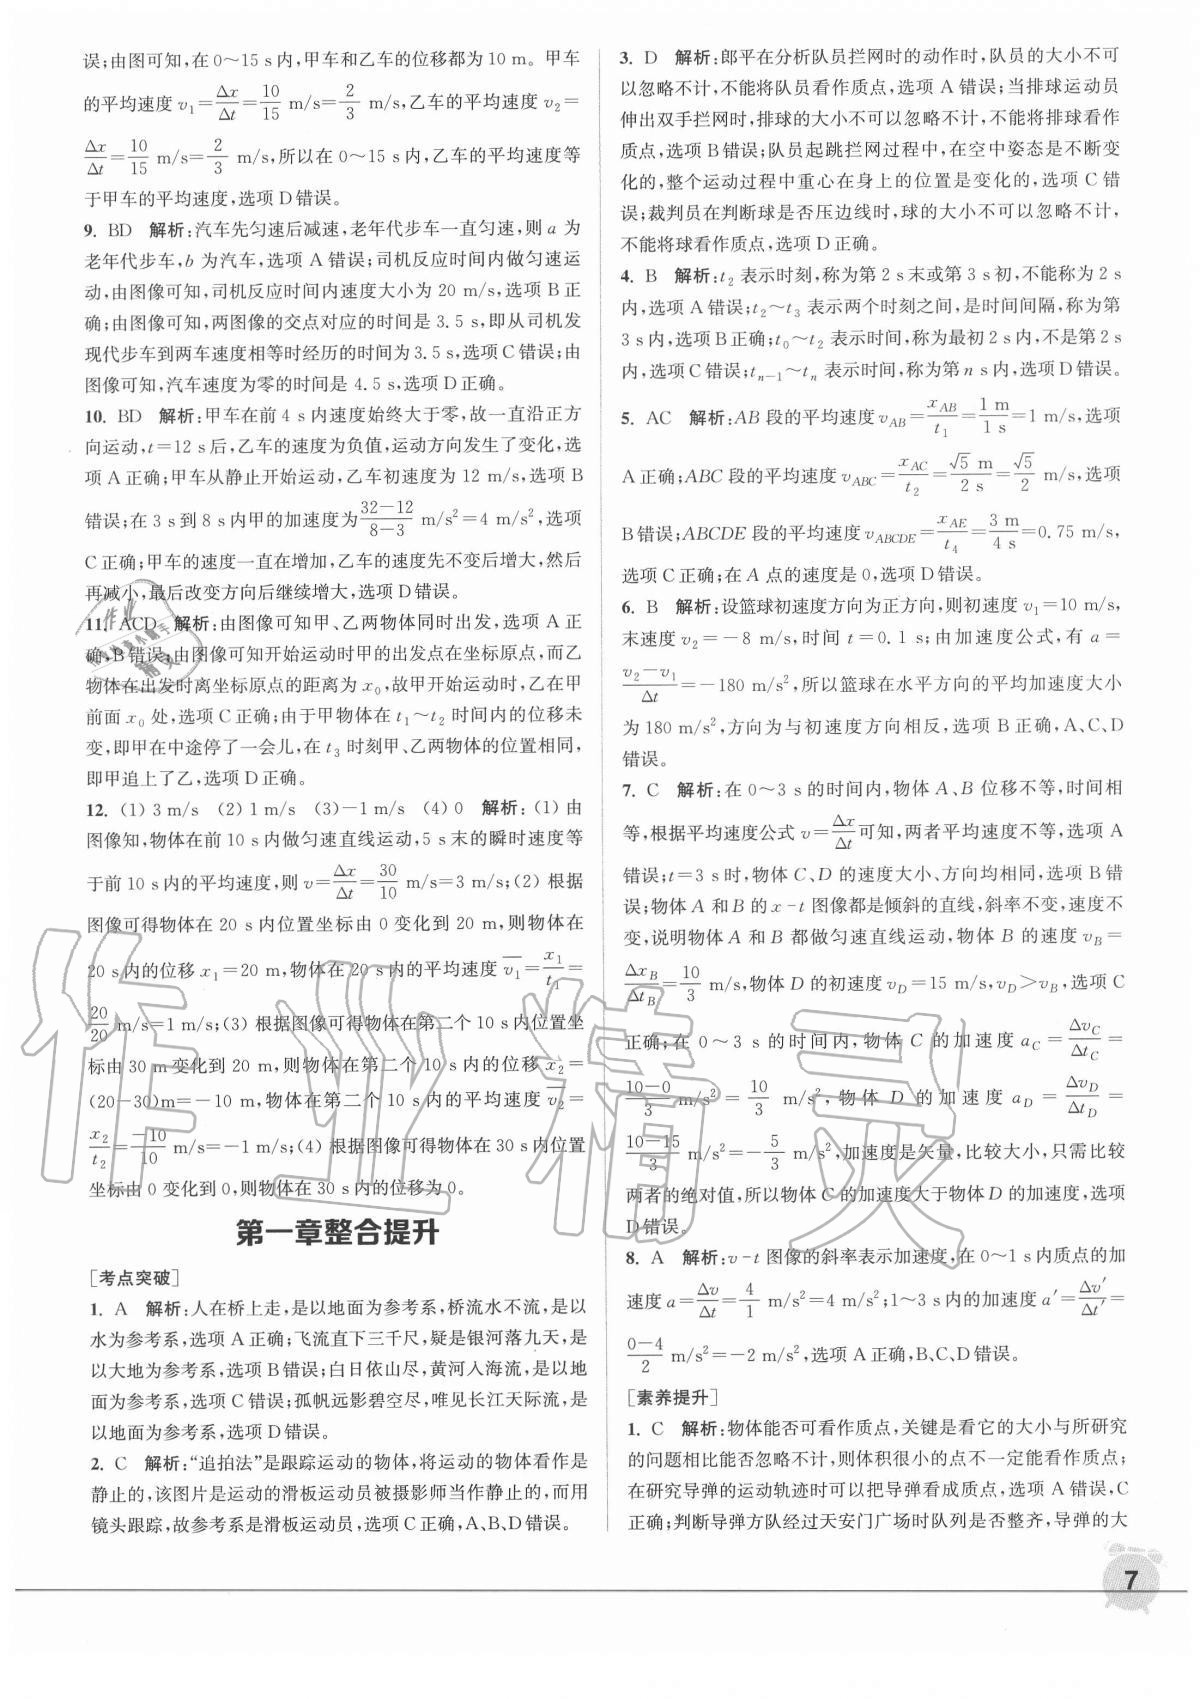 误;由图可知,在0～15 s内,甲车和乙车的位移都为10 m。甲车
的平均速度 v₁=Δx/Δt=10/15 m/s=2/3 m/s,乙车的平均速度 v₂=
Δx/Δt=10/15 m/s=2/3 m/s,所以在0～15 s内,乙车的平均速度等
于甲车的平均速度,选项D错误。
9. BD 解析:汽车先匀速后减速,老年代步车一直匀速,则 a 为
老年代步车,b 为汽车,选项A错误;司机反应时间内做匀速运
动,由图像可知,司机反应时间内速度大小为20 m/s,选项B正
确;由图像可知,两图像的交点对应的时间是3.5 s,即从司机发
现代步车到两车速度相等时经历的时间为3.5 s,选项C错误;由
图像可知,汽车速度为零的时间是4.5 s,选项D正确。
10. BD 解析:甲车在前4 s内速度始终大于零,故一直沿正方
向运动,t=12 s后,乙车的速度为负值,运动方向发生了变化,选
项A正确;甲车从静止开始运动,乙车初速度为12 m/s,选项B
错误;在3 s到8 s内甲的加速度为(32-12)/(8-3) m/s²=4 m/s²,选项
C正确;甲车的速度一直在增加,乙车的速度先不变后增大,然后
再减小,最后改变方向后继续增大,选项D错误。
11. ACD 解析:由图像可知甲、乙两物体同时出发,选项A正
确,B错误;由图像可知开始运动时甲的出发点在坐标原点,而乙
物体在出发时离坐标原点的距离为 x₀,故甲开始运动时,乙在甲
前面 x₀ 处,选项C正确;由于甲物体在 t₁～t₂ 时间内的位移未
变,即甲在中途停了一会儿,在 t₃ 时刻甲、乙两物体的位置相同,
即甲追上了乙,选项D正确。
12. (1) 3 m/s (2) 1 m/s (3)-1 m/s (4) 0 解析:(1) 由
图像知,物体在前10 s内做匀速直线运动,5 s末的瞬时速度等
于前10 s内的平均速度,则 v=Δx/Δt=30/10 m/s=3 m/s;(2) 根据
图像可得物体在20 s内位置坐标由0变化到20 m,则物体在
20 s内的位移 x₁=20 m,物体在20 s内的平均速度 v̅₁=x₁/t₁=
20/20 m/s=1 m/s;(3) 根据图像可得物体在第二个10 s内位置坐
标由30 m变化到20 m,则物体在第二个10 s内的位移 x₂=
(20-30)m=-10 m,物体在第二个10 s内的平均速度 v̅₂=
x₂/t₂=-10/10 m/s=-1 m/s;(4) 根据图像可得物体在30 s内位置
坐标由0变化到0,则物体在30 s内的位移为0。
第一章整合提升
[考点突破]
1. A 解析:人在桥上走,是以地面为参考系,桥流水不流,是以
水为参考系,选项A正确;飞流直下三千尺,疑是银河落九天,是
以大地为参考系,选项B错误;白日依山尽,黄河入海流,是以地
面为参考系,选项C错误;孤帆远影碧空尽,唯见长江天际流,是
以地面为参考系,选项D错误。
2. C 解析:“追拍法”是跟踪运动的物体,将运动的物体看作是
静止的,该图片是运动的滑板运动员被摄影师当作静止的,而用
镜头跟踪,故参考系是滑板运动员,选项C正确,A、B、D错误。
3. D 解析:郎平在分析队员拦网时的动作时,队员的大小不可
以忽略不计,不能将队员看作质点,选项A错误;当排球运动员
伸出双手拦网时,排球的大小不可以忽略不计,不能将排球看作
质点,选项B错误;队员起跳拦网过程中,在空中姿态是不断变
化的,整个运动过程中重心在身上的位置是变化的,选项C错
误;裁判员在判断球是否压边线时,球的大小不可以忽略不计,
不能将球看作质点,选项D正确。
4. B 解析:t₂ 表示时刻,称为第2 s末或第3 s初,不能称为2 s
内,选项A错误;t₂～t₃ 表示两个时刻之间,是时间间隔,称为第
3 s内,选项B正确;t₀～t₂ 表示时间,称为最初2 s内,不是第2 s
内,选项C错误;tₙ₋₁～tₙ 表示时间,称为第 n s内,选项D错误。
5. AC 解析:AB 段的平均速度 v_AB=x_AB/t₁=1 m/1 s=1 m/s,选项
A正确;ABC 段的平均速度 v_ABC=x_AC/t₂=√5 m/2 s=√5/2 m/s,选项
B错误;ABCDE 段的平均速度 v_ABCDE=x_AE/t₄=3 m/4 s=0.75 m/s,
选项C正确;在 A 点的速度是0,选项D错误。
6. B 解析:设篮球初速度方向为正方向,则初速度 v₁=10 m/s,
末速度 v₂=-8 m/s,时间 t=0.1 s;由加速度公式,有 a=
(v₂-v₁)/Δt=-180 m/s²,所以篮球在水平方向的平均加速度大小
为180 m/s²,方向为与初速度方向相反,选项B正确,A、C、D
错误。
7. C 解析:在0～3 s的时间内,物体 A、B 位移不等,时间相
等,根据平均速度公式 v=Δx/Δt可知,两者平均速度不等,选项A
错误;t=3 s时,物体 C、D 的速度大小、方向均相同,选项B错
误;物体 A 和 B 的 x-t 图像都是倾斜的直线,斜率不变,速度不
变,说明物体 A 和 B 都做匀速直线运动,物体 B 的速度 v_B=
Δx_B/Δt_B=10/3 m/s,物体 D 的初速度 v_D=15 m/s,v_D>v_B,选项C
正确;在0～3 s的时间内,物体 C 的加速度 a_C=Δv_C/Δt_C=
(10-0)/3 m/s²=10/3 m/s²,物体 D 的加速度 a_D=Δv_D/Δt_D=
(10-15)/3 m/s²=-5/3 m/s²,加速度是矢量,比较大小,只需比较
两者的绝对值,所以物体 C 的加速度大于物体 D 的加速度,选项
D错误。
8. A 解析:v-t 图像的斜率表示加速度,在0～1 s内质点的加
速度 a=Δv/Δt=4/1 m/s²=4 m/s²;1～3 s内的加速度 a′=Δv′/Δt′=
(0-4)/2 m/s²=-2 m/s²,选项A正确,B、C、D错误。
[素养提升]
1. C 解析:物体能否可看作质点,关键是看它的大小与所研究
的问题相比能否忽略不计,则体积很小的点不一定能看作质点;
在研究导弹的运动轨迹时可以把导弹看成质点,选项A错误,C
正确;判断导弹方队经过天安门广场时队列是否整齐,导弹的大
7
作业精灵